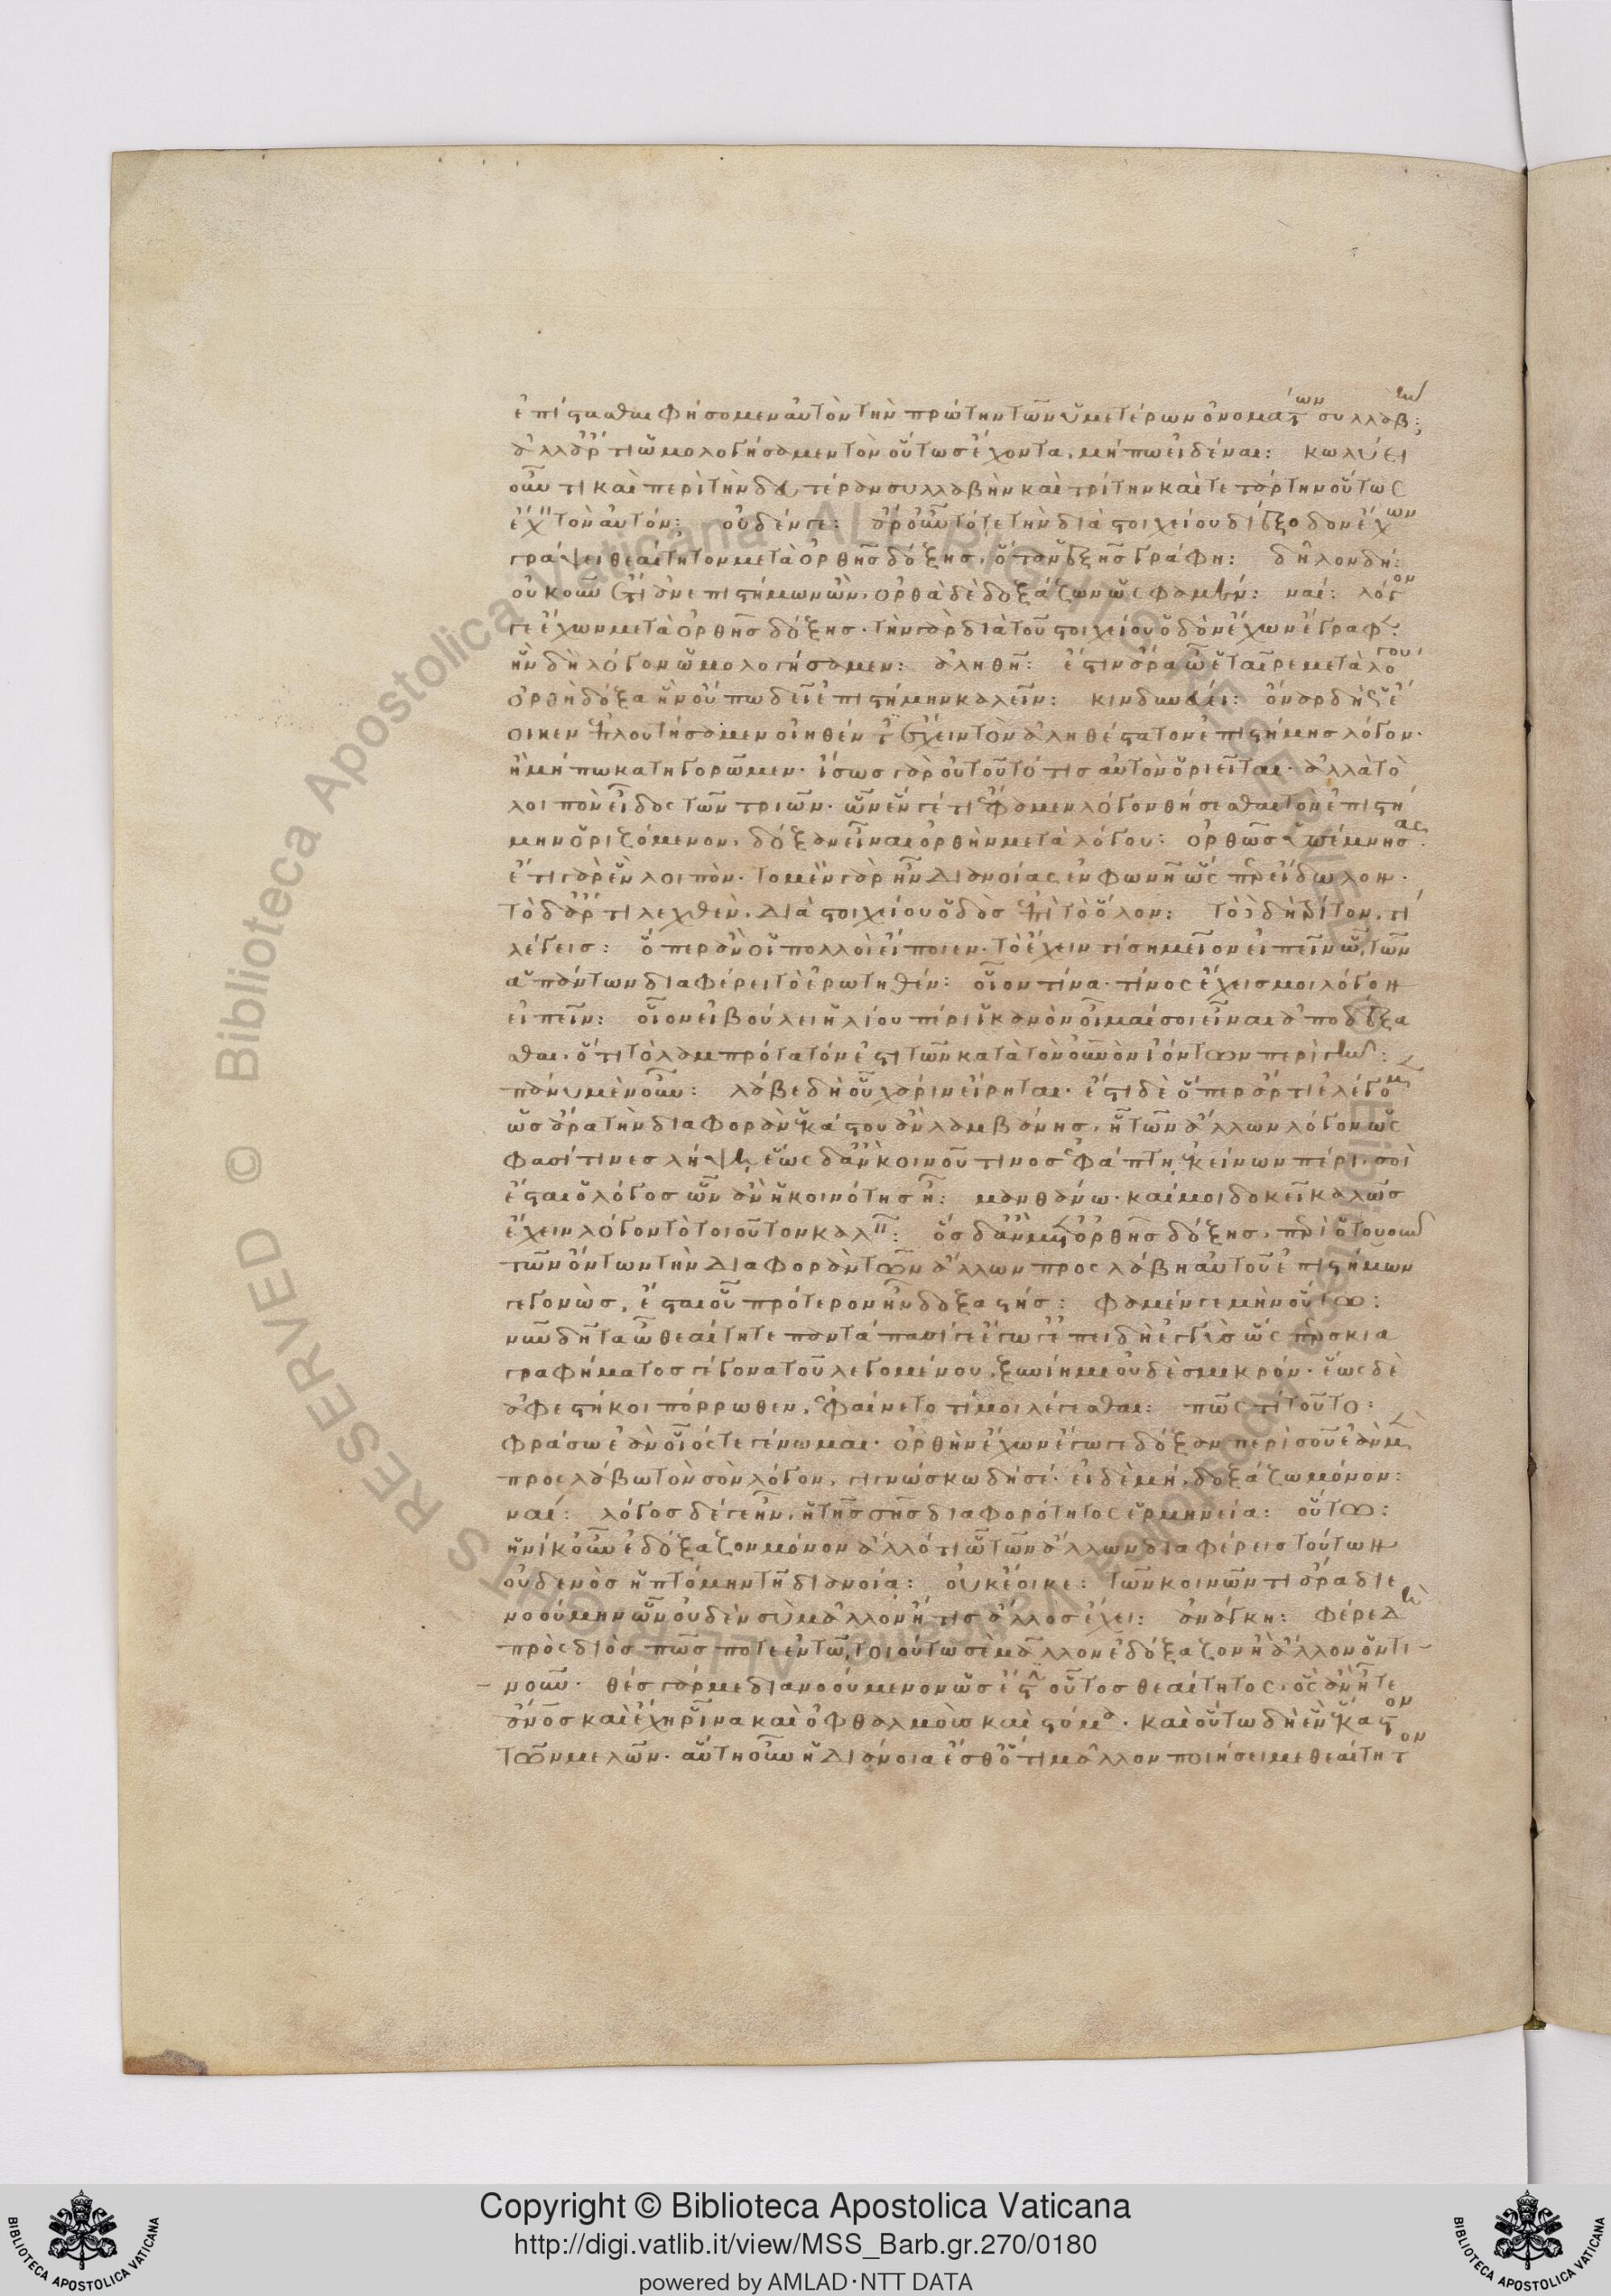 ἐπίστασθαι φήσομεν αὐτὸν τὴν πρώτην τῶν ὑμετέρων ὀνομάτων συλλαβήν;
ἀλλ' ἄρτι ὡμολογήσαμεν τὸν οὕτως ἔχοντα, μήπω εἰδέναι: κωλύει
οὖν τι καὶ περὶ τὴν δευτέραν συλλαβὴν καὶ τρίτην καὶ τετάρτην οὕτως
ἔχειν τὸν αὐτόν: οὐδέν γε: ἆρ' οὖν τότε τὴν διὰ στοιχείου διέξοδον ἔχων
γράψει θεαίτητον μετὰ ὀρθῆς δόξης, ὅταν ἑξῆς γράφη: δῆλον δή:
οὐκοῦν ἔτι ἀνεπιστήμων ὢν, ὀρθὰ δὲ δοξάζων ὥς φαμεν: ναί: λόγον
γε ἔχων μετὰ ὀρθῆς δόξης· τὴν γὰρ διὰ τοῦ στοιχείου ὁδὸν ἔχων ἔγραφεν:
ἣν δὴ λόγον ὡμολογήσαμεν: ἀληθῆ: ἔστιν ἄρα ὦ ἑταῖρε μετὰ λόγου
ὀρθὴ δόξα ἣν οὔπω δεῖ ἐπιστήμην καλεῖν: κινδυνεύει: ὄναρ δὴ ὡς ἔ
οικεν ἐπλουτήσαμεν οἰηθέντες ἔχειν τὸν ἀληθέστατον ἐπιστήμης λόγον·
ἢ μήπω κατηγορῶμεν· ἴσως γὰρ οὐ τοῦτό τις αὐτὸν ὁριεῖται· ἀλλὰ τὸ
λοιπὸν εἶδος τῶν τριῶν· ὧν ἕν γέ τι ἔφαμεν λόγον θήσεσθαι τὸν ἐπιστή
μην ὁριζόμενον, δόξαν εἶναι ὀρθὴν μετὰ λόγου: ὀρθῶς ὑπέμνησας:
ἔτι γὰρ ἓν λοιπὸν· τὸ μὲν γὰρ ἦν διανοίας ἐν φωνῆ ὥσπερ εἴδωλον·
τὸ δ' ἄρτι λεχθὲν, διὰ στοιχείου ὁδὸς ἐπὶ τὸ ὅλον: τὸ δὲ δὴ τρίτον, τί
λέγεις: ὅπερ ἂν οἱ πολλοὶ εἴποιεν· τὸ ἔχειν τι σημεῖον εἰπεῖν ὧ, τῶν
ἁπάντων διαφέρει τὸ ἐρωτηθέν: οἷον τίνα· τίνος ἔχεις μοι λόγον
εἰπεῖν: οἷον εἰ βούλει ἡλίου πέρι ἱκανὸν οἶμαί σοι εἶναι ἀποδέξα
σθαι, ὅτι τὸ λαμπρότατόν ἐστι τῶν κατὰ τὸν οὐρανὸν ἰόντων περὶ γῆν:
πάνυ μὲν οὖν: λάβε δὴ οὗ χάριν εἴρηται· ἔστι δὲ ὅπερ ἄρτι ἐλέγομεν
ὡς ἄρα τὴν διαφορὰν ἑκάστου ἂν λαμβάνης, ἧ τῶν ἄλλων λόγον ὥς
φασί τινες λήψη, ἕως δ' ἂν κοινοῦ τινος ἐφάπτη ἐκείνων πέρι, σοὶ
ἔσται ὁ λόγος ὧν ἂν ἡ κοινότης ἦ: μανθάνω· καί μοι δοκεῖ καλῶς
ἔχειν λόγον τὸ τοιοῦτον καλεῖν: ὃς δ' ἂν μετ' ὀρθῆς δόξης, περὶ ὁτουοῦν
τῶν ὄντων τὴν διαφορὰν τῶν ἄλλων προσλάβη αὐτοῦ ἐπιστήμων
γεγονὼς, ἔσται οὗ πρότερον ἦν δοξαστής: φαμέν γε μὴν οὕτω:
νῦν δῆτα ὦ θεαίτητε παντάπασί γε ἔγωγε ἐπειδὴ ἐγγὺς ὥσπερ σκια
γραφήματος γέγονα τοῦ λεγομένου, ξυνίημι οὐδὲ σμικρόν· ἕως δὲ
ἀφεστήκοι πόρρωθεν, ἐφαίνετο τί μοι λέγεσθαι: πῶς τί τοῦτο:
φράσω ἐὰν οἷός τε γένωμαι· ὀρθὴν ἔχων ἔγωγε δόξαν περὶ σοῦ ἐὰν μὲν
προσλάβω τὸν σὸν λόγον, γιγνώσκω δή σε· εἰ δὲ μή, δοξάζω μόνον:
ναί: λόγος δέ γε ἦν, ἡ τῆς σῆς διαφορότητος ἑρμηνεία: οὕτω:
ἡνίκ' οὖν ἐδόξαζον μόνον ἄλλό τι ὧ τῶν ἄλλων διαφέρεις τούτων
οὐδενὸς ἡπτόμην τῆ διανοία: οὐκ ἔοικε: τῶν κοινῶν τι ἄρα διε
νοούμην ὧν οὐδὲν σὺ μᾶλλον ἤ τις ἄλλος ἔχει: ἀνάγκη: φέρε δὴ
πρὸς διός πῶς ποτε ἐν τῶ, τοιούτω σὲ μᾶλλον ἐδόξαζον ἢ ἄλλον ὁντι-
-νοῦν· θὲς γάρ με διανοούμενον ὡς ἔστιν οὗτος θεαίτητος, ὃς ἂν ἦ τε
ἄνος καὶ ἔχη ῥῖνα καὶ ὀφθαλμοὺς καὶ στόμα· καὶ οὕτω δὴ ἓν ἕκαστον
τῶν μελῶν· αὕτη οὖν ἡ διάνοια ἔσθ' ὅ τι μᾶλλον ποιήσει με θεαίτητον
Copyright © Biblioteca Apostolica Vaticana
http://digi.vatlib.it/view/MSS_Barb.gr.270/0180
powered by AMLAD·NTT DATA